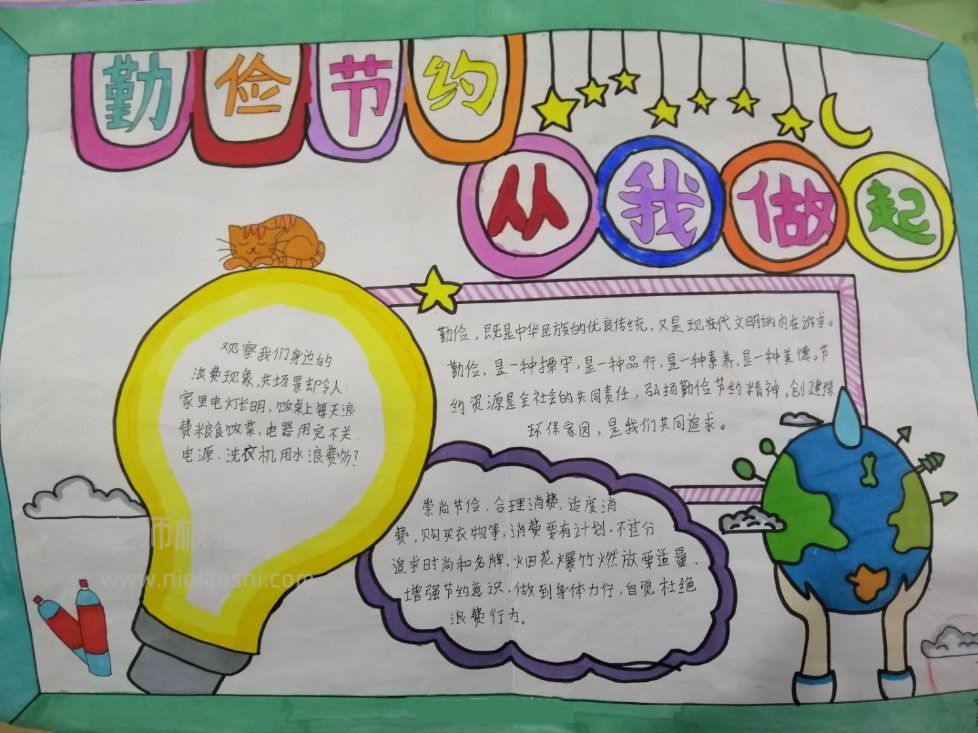 勤俭节约
从我做起
勤俭，既是中华民族的优良传统，又是现在代文明的内在诉求。
勤俭、是一种操守，是一种品行，是一种素养，是一种美德。节
约资源是全社会的共同责任，弘扬勤俭节约精神，创建绿
环保家园，是我们共同追求。
观察我们身边的
浪费现象，失场景却令人：
家里电灯长明，饭桌上每天浪
费粮食饭菜，电器用完不关
电源、洗衣机用水浪费多？
崇尚节俭，合理消费，适度消
费，购买衣物等，消费要有计划，不过分
追求时尚和名牌、烟花爆竹燃放要适量、
增强节约意识，做到身体力行，自觉杜绝
浪费行为。
www.nielaoshi.com